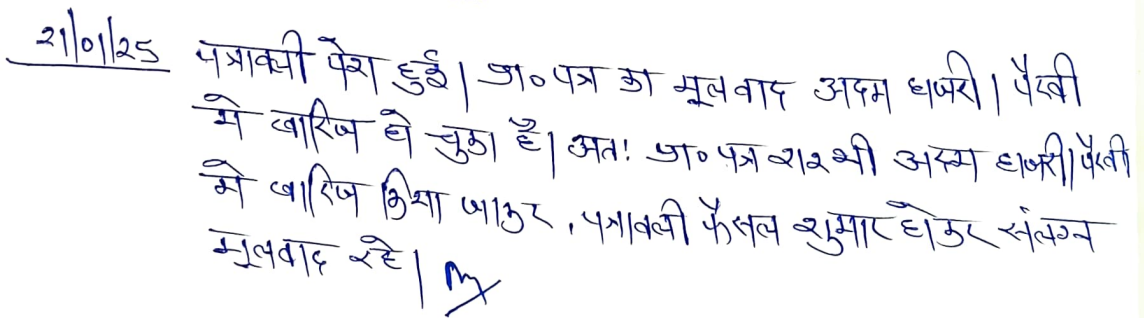 21/01/25 पत्रावली पेश हुई। प्रा० पत्र का मूलवाद अदम हाजरी। पैरवी
मे खारिज हो चुका है। अतः प्रा० पत्र भी अदम हाजरी।पैरवी
मे खारिज किया जाकर, पत्रावली फैसल शुमार होकर संलग्न
मूलवाद रहे।